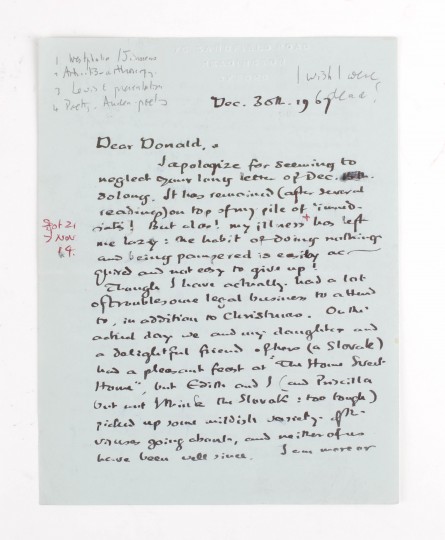 1 Westphalia / Jainism
2
3 Lewis's presentation
4 Poetry. Auden poetry
I wish I were
dead!
Dec. 30th. 1967
Dear Donald,
I apologize for seeming to
neglect your long letter of Dec.
so long. It has remained (after several
readings) on top of my pile of 'immed-
iates'! But alas! my illness + has left
me lazy: the habit of doing nothing
and being pampered is easily ac-
quired and not easy to give up!
Though I have actually had a lot
of troublesome legal business to attend
to, in addition to Christmas. On the
actual day we and my daughter and
a delightful friend of hers (a Slovak)
had a pleasant feast at "The Home Sweet
Home", but Edith and I (and Priscilla
but not I think the Slovak: too tough)
picked up some mildish variety of the
viruses going about, and neither of us
have been well since. I am more or
+ Oct 21
> Nov
14.